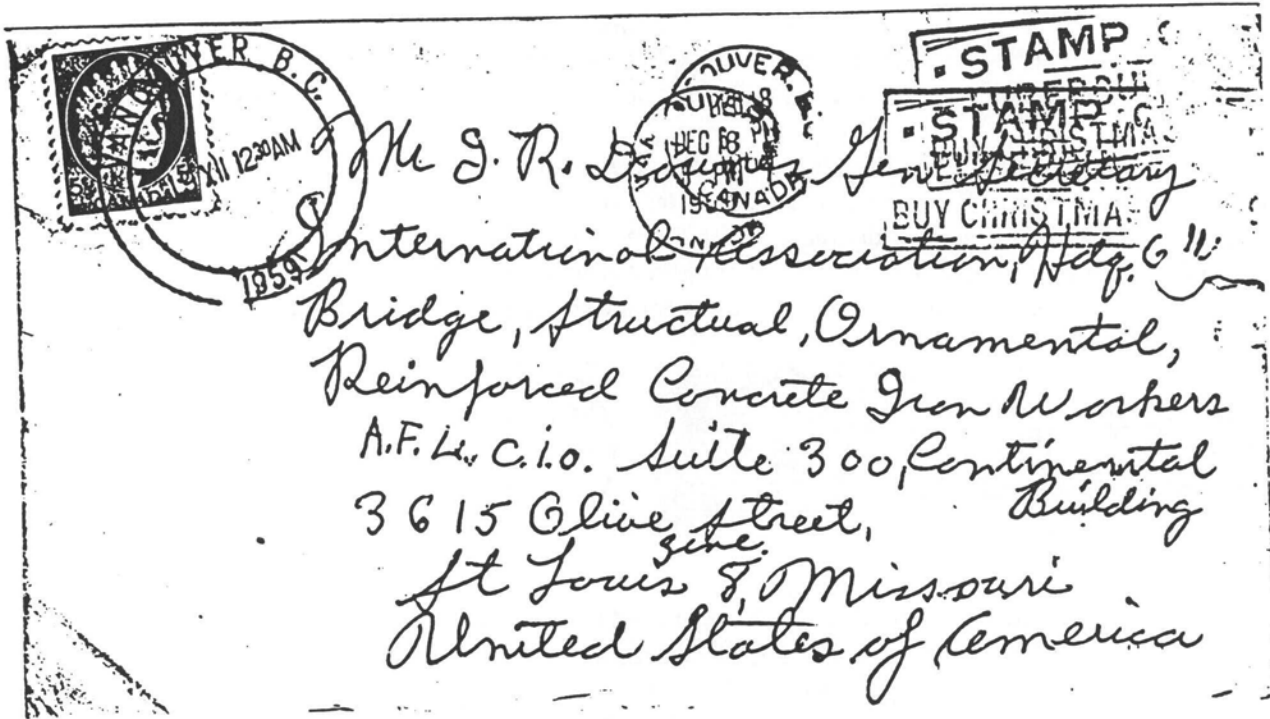 VANCOUVER B.C.
XII 12:30AM
1959
CANADA
STAMP
STAMP
BUY CHRISTMAS
Mr J. R. Gen Secretary
International Association, Hdq.
Bridge, Structual, Ornamental,
Reinforced Concrete Iron Workers
A.F.L. C.I.O. Suite 300, Continental
Building
3615 Olive Street,
zone.
St Louis 8, Missouri
United States of America